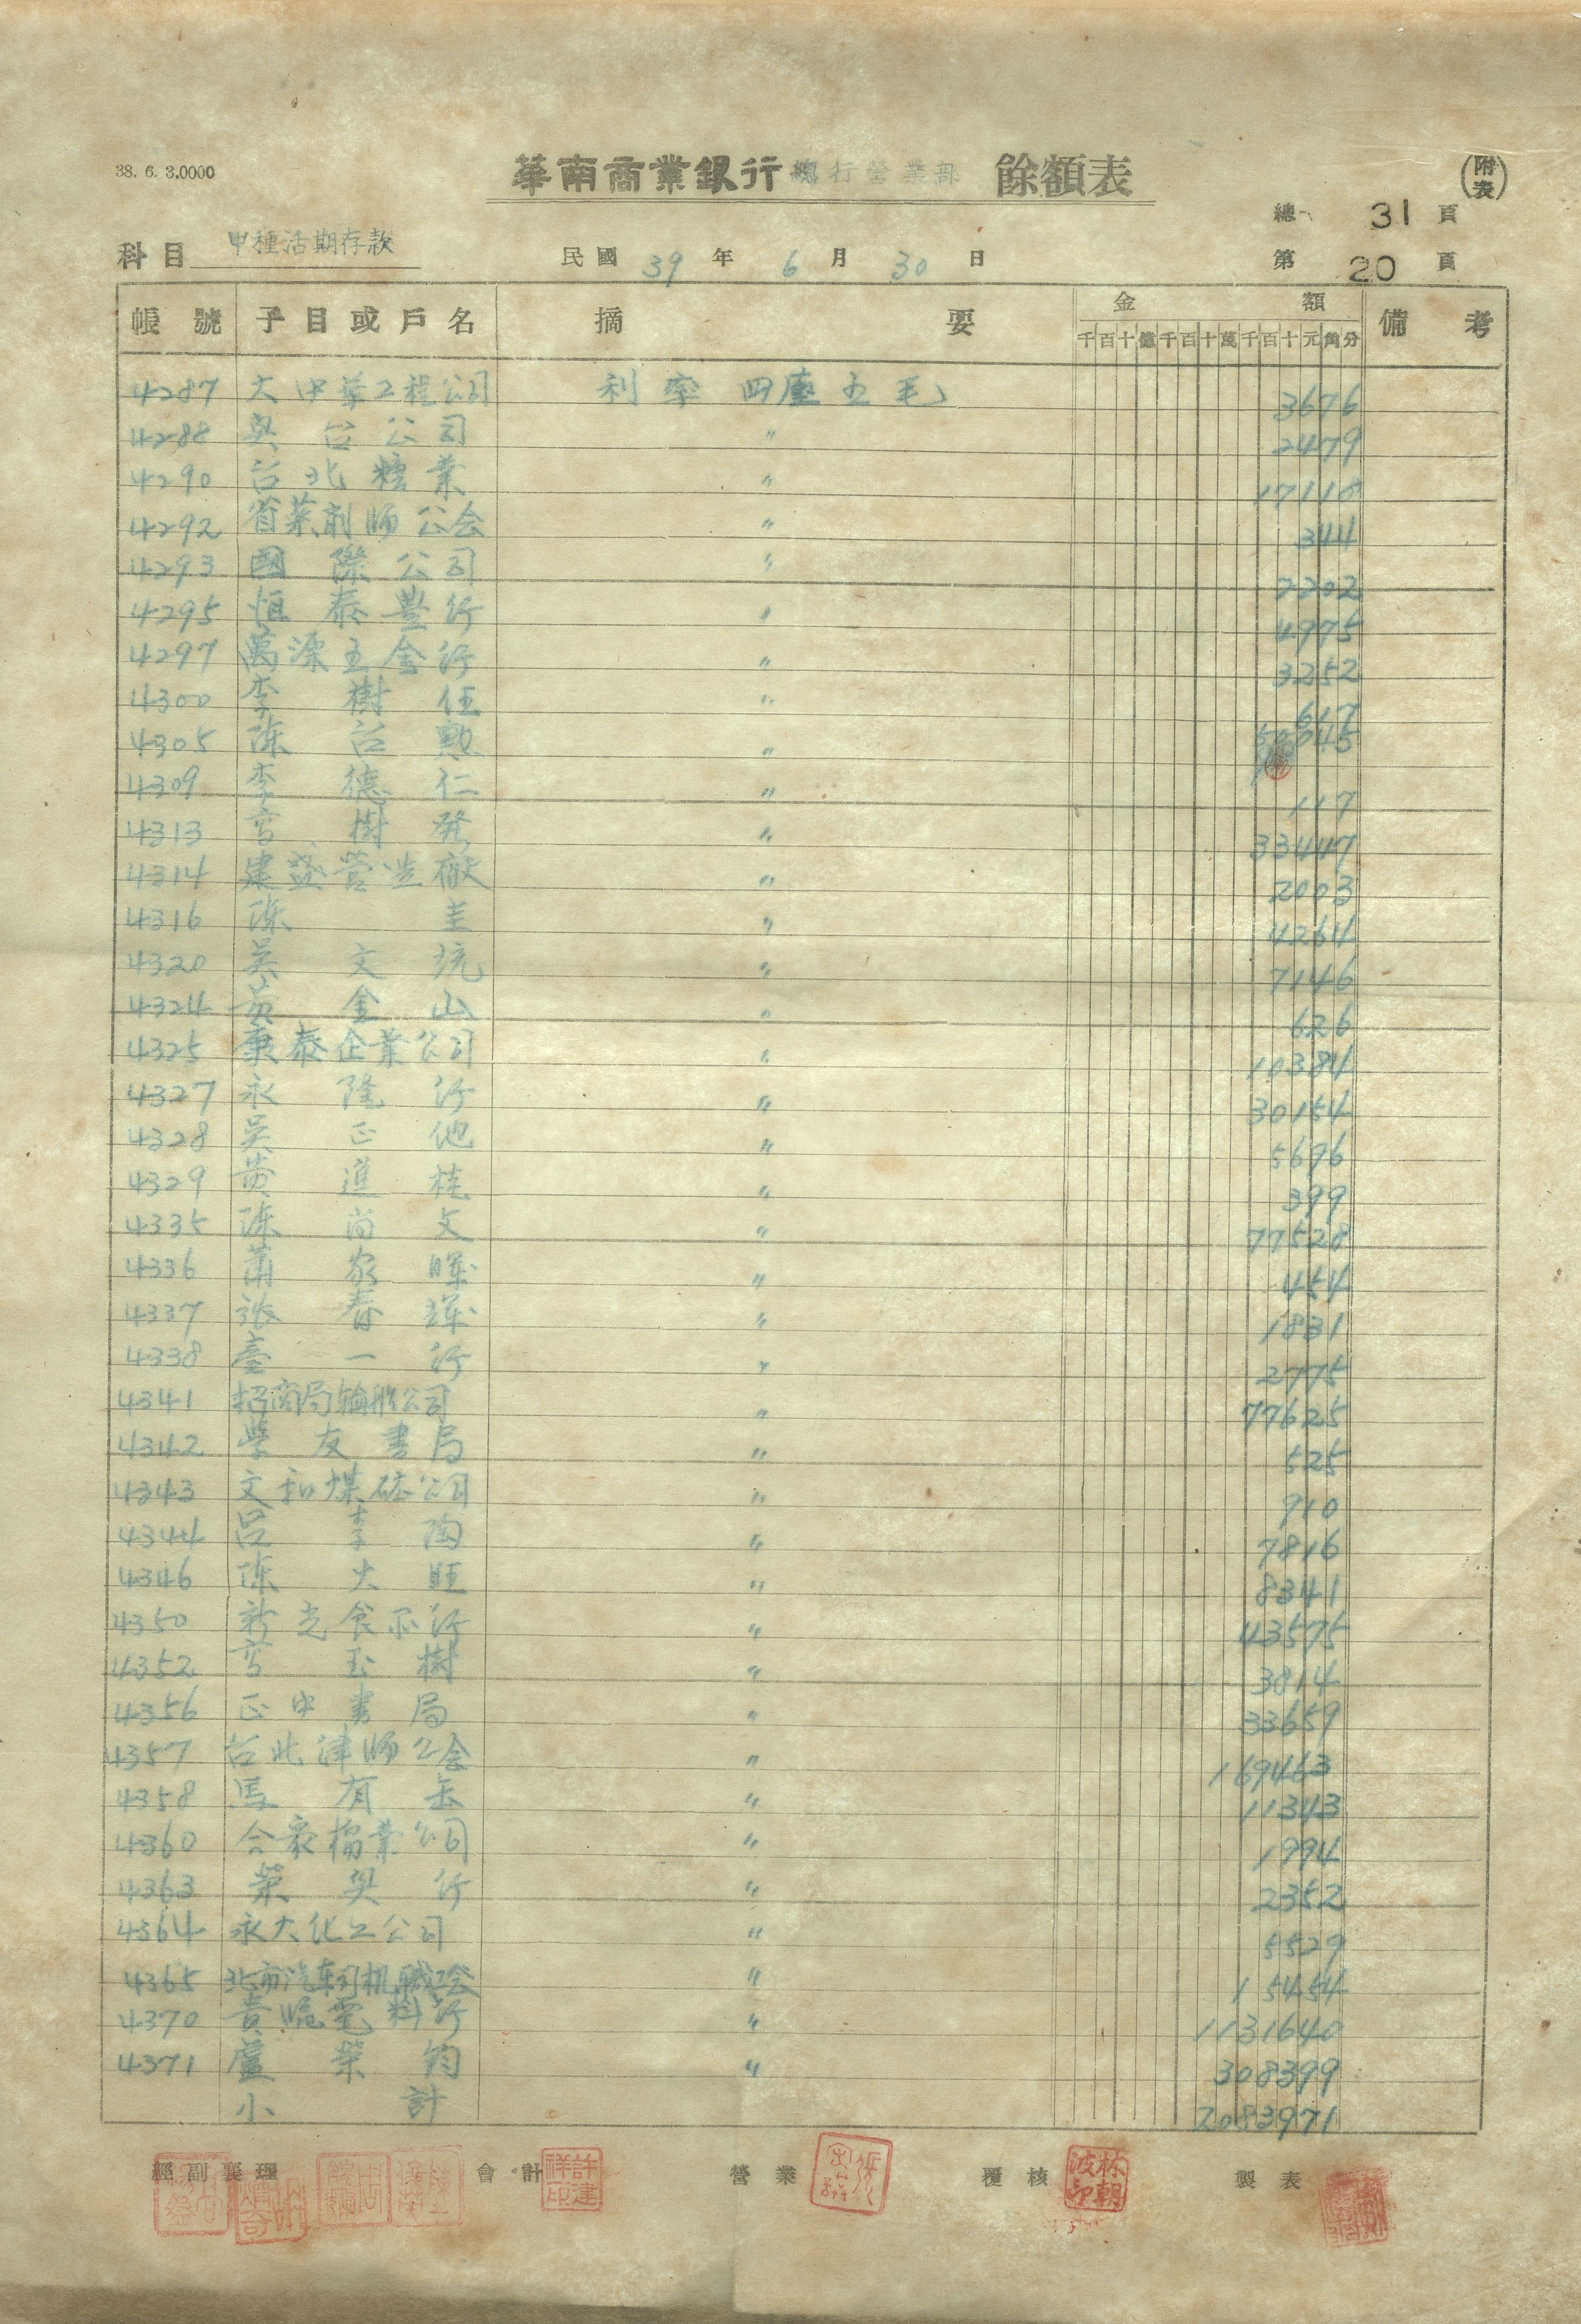 38. 6. 3.0000
華南商業銀行 總行營業部 餘額表
(附表)
總 31 頁
科目 甲種活期存款 民國 39 年 6 月 30 日 第 20 頁
帳號 子目或戶名 摘要 金額 備考
千百十億千百十萬千百十元角分
4287 大中華工程公司 利率四厘五毛 3676
4288 興台公司 〃 2479
4290 台北糖業 〃 17118
4292 省薬剤師公会 〃 344
4293 國際公司 〃 2202
4295 恒泰豊行 〃 4975
4297 萬源五金行 〃 3252
4300 李樹伍 〃 617
4305 陈台勲 〃 45
4309 李德仁 〃 117
4313 樹発 〃 33447
4314 建盛營造廠 〃 2003
4316 陈圭 〃 4264
4320 吴文 〃 7146
4324 黄金山 〃 626
4325 秉泰企業公司 〃 10384
4327 永隆行 〃 30154
4328 吴正 〃 5696
4329 黄進桂 〃 399
4335 陈尚文 〃 77528
4336 蕭家暉 〃 454
4337 張春輝 〃 1831
4338 臺一行 〃 2775
4341 招商局輪船公司 〃 77625
4342 學友書局 〃 525
4343 文和煤礦公司 〃 910
4344 呂李陶 〃 7816
4346 陈大旺 〃 8341
4350 新光食品行 〃 43575
4352 玉樹 〃 3814
4356 正中書局 〃 33659
4357 台北律師公会 〃 169463
4358 馬有岳 〃 11343
4360 合豪檜業公司 〃 1994
4363 榮興行 〃 2352
4364 永大化工公司 〃 5529
4365 北市汽车司机職工会 〃 15454
4370 貴臨電料行 〃 1131640
4371 盧榮鈞 〃 308399
小計 2083971
經副襄理 會計 營業 覆核 製表
許建祥印
林朝波印